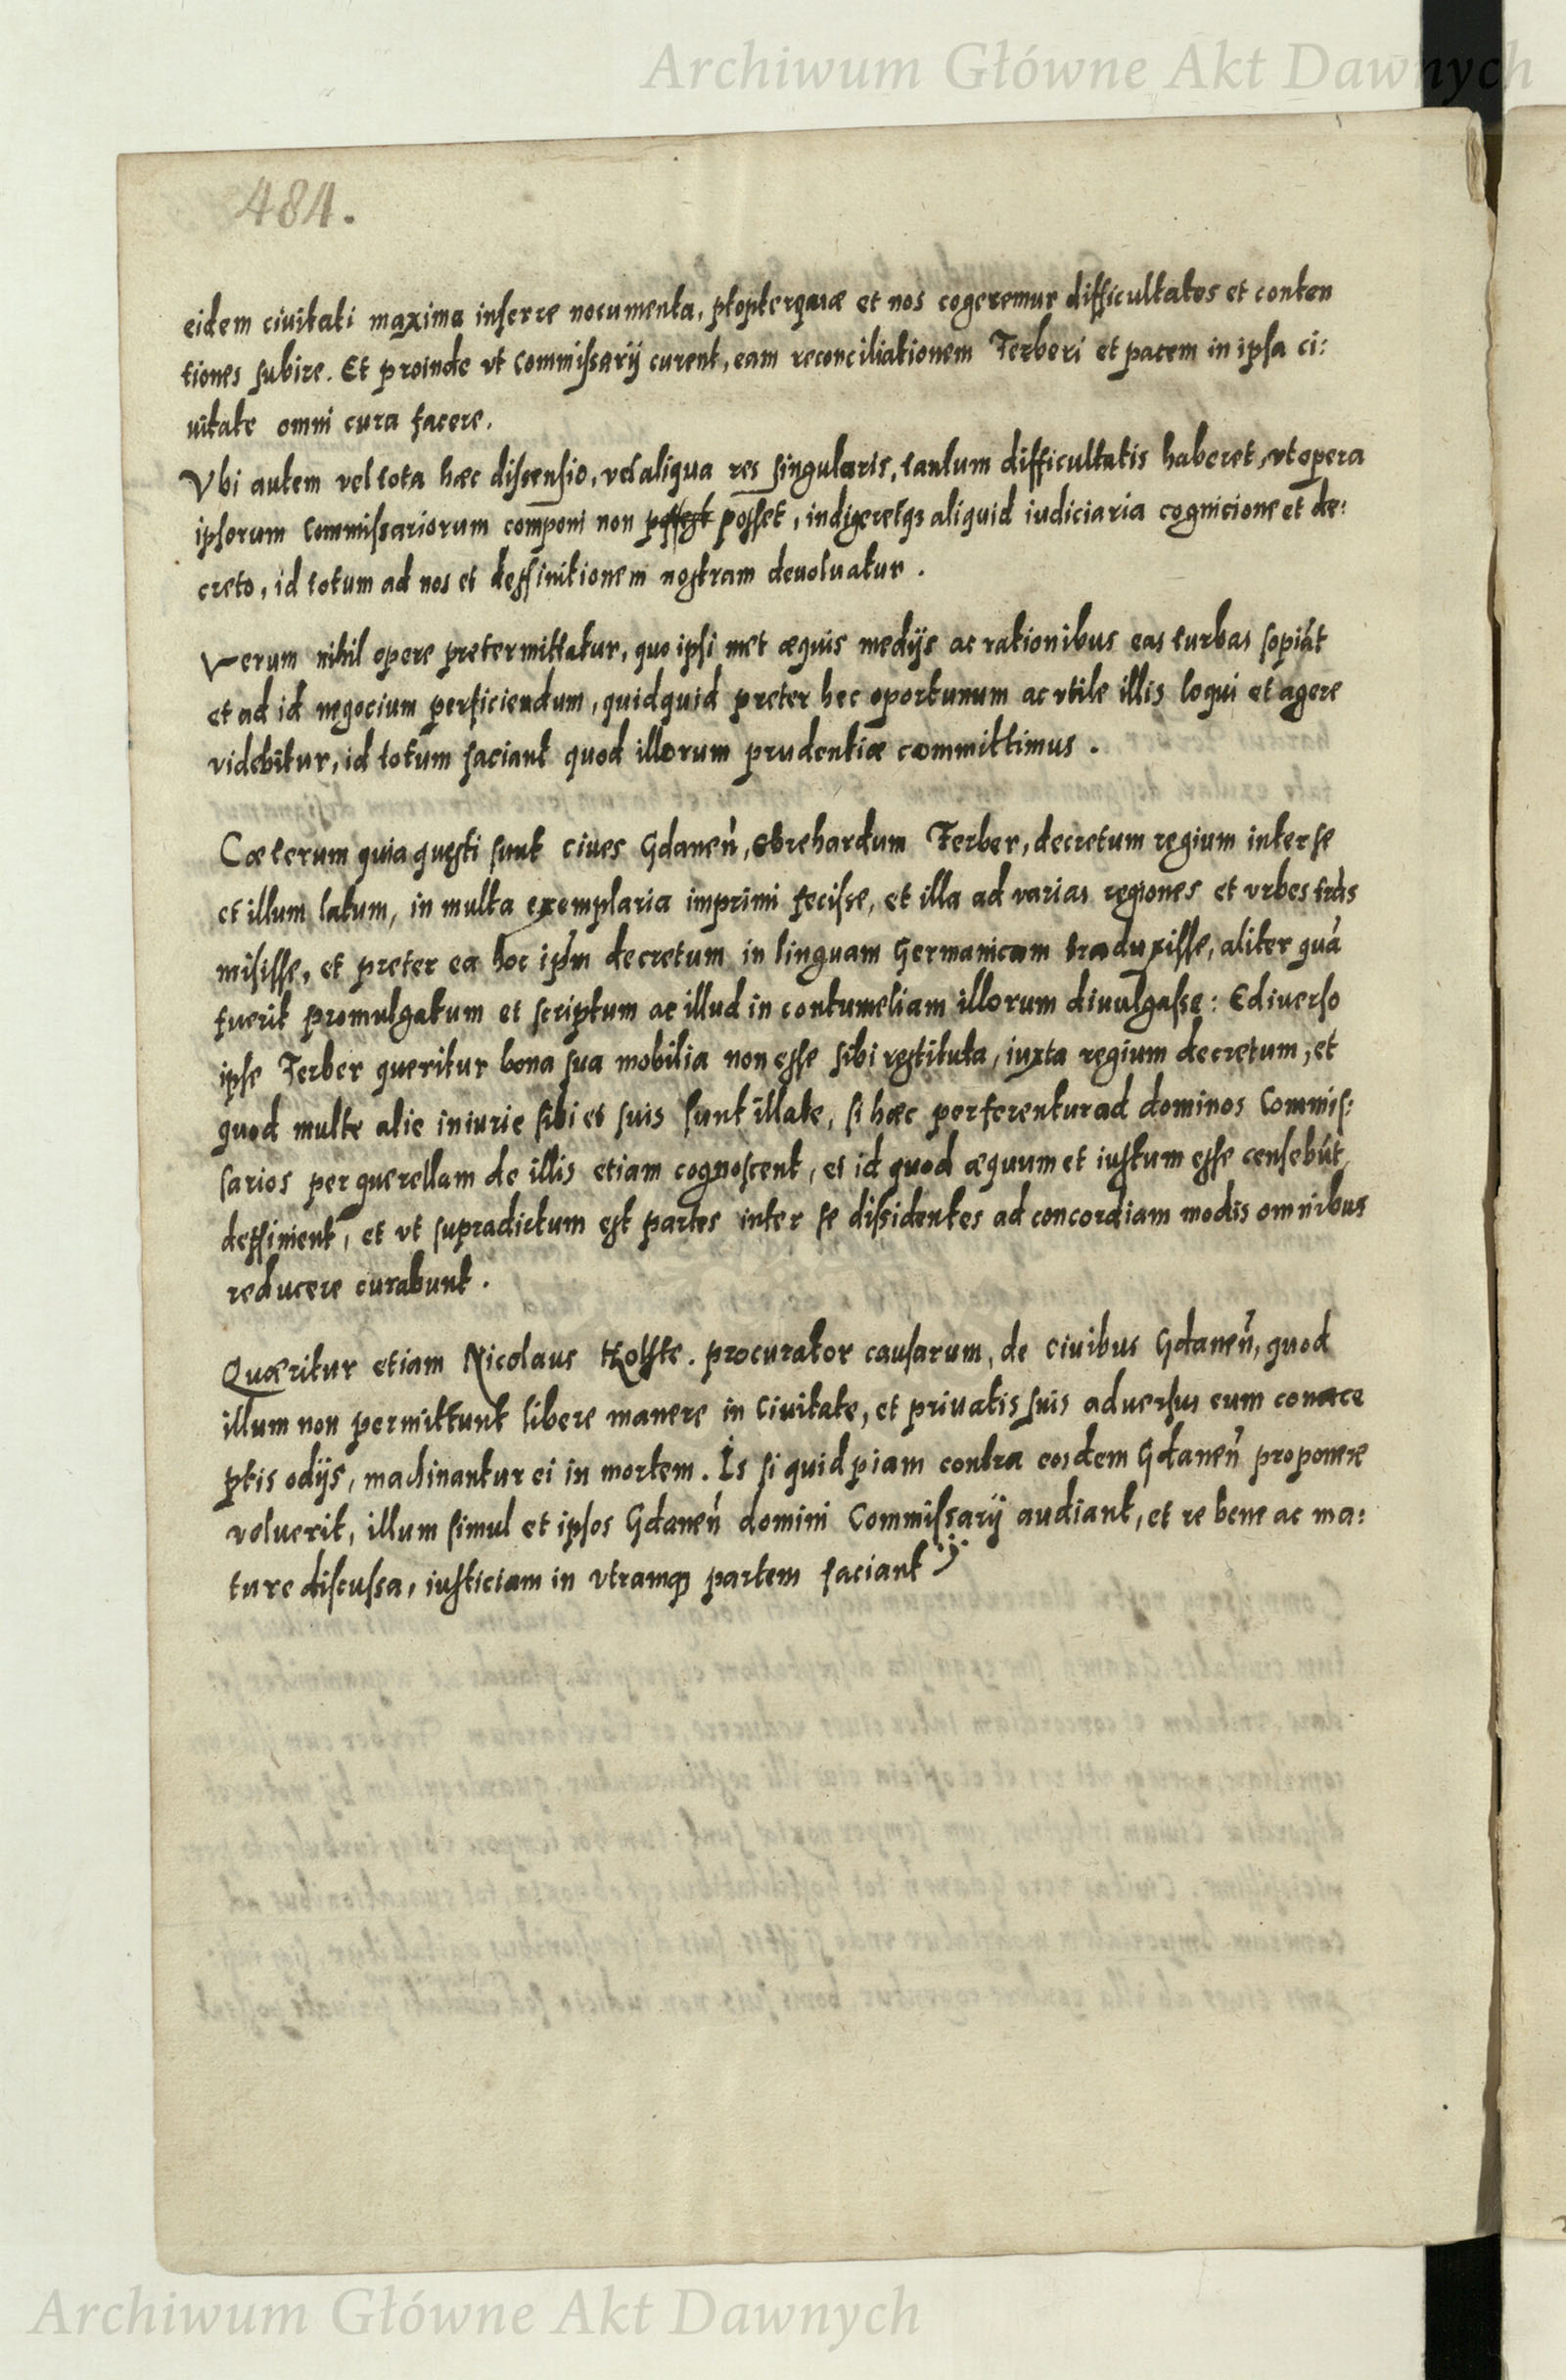 Archiwum Główne Akt Dawnych
484.
eidem ciuitati maxima inferre nocumenta, ptopterquæ et nos cogeremur difficultates et conten
tiones subire. Et proinde vt Commissarij curent, eam reconciliationem Ferberi et pacem in ipsa ci:
uitate omni cura facere.
Vbi autem vel tota hæc dissensio, vel aliqua res singularis, tantum difficultatis haberet, vt opera
ipsorum Commissariorum componi non posset, indigeretq3 aliquid iudiciaria cognicione et de:
creto, id totum ad nos et deffinitionem nostram deuoluatur.
Verum nihil opere pretermittatur, quo ipsi met æquis medijs ac rationibus eas turbas sopiāt
et ad id negocium perficiendum, quidquid preter hec oportunum ac vtile illis loqui et agere
videbitur, id totum faciant quod illorum prudentiæ committimus.
Cæterum quia questi sunt ciues Gdaneñ, Ebrehardum Ferber, decretum regium inter se
et illum latum, in multa exemplaria imprimi fecisse, et illa ad varias regiones et vrbes trās
misisse, et preter ea hoc ip̄m decretum in linguam Germanicam traduxisse, aliter quā
fuerit promulgatum et scriptum ac illud in contumeliam illorum diuulgasse: Ediuerso
ipse Ferber queritur bona sua mobilia non esse sibi restituta, iuxta regium decretum, et
quod multe alie iniurie sibi et suis sunt illate, si hæc perferentur ad dominos Commis:
sarios per querellam de illis etiam cognoscent, et id quod æquum et iustum esse censebūt
deffinient, et vt supradictum est partes inter se dissidentes ad concordiam modis omnibus
reducere curabunt.
Quæritur etiam Nicolaus Holste. procurator causarum, de ciuibus Gdaneñ, quod
illum non permittunt libere manere in Ciuitate, et priuatis suis aduersus eum conace
ptis odijs, machinantur ei in mortem. Is si quidpiam contra eosdem Gdaneñ proponere
voluerit, illum simul et ipsos Gdaneñ domini Commissarij audiant, et re bene ac ma:
ture discussa, iusticiam in vtramq3 partem faciant
Archiwum Główne Akt Dawnych